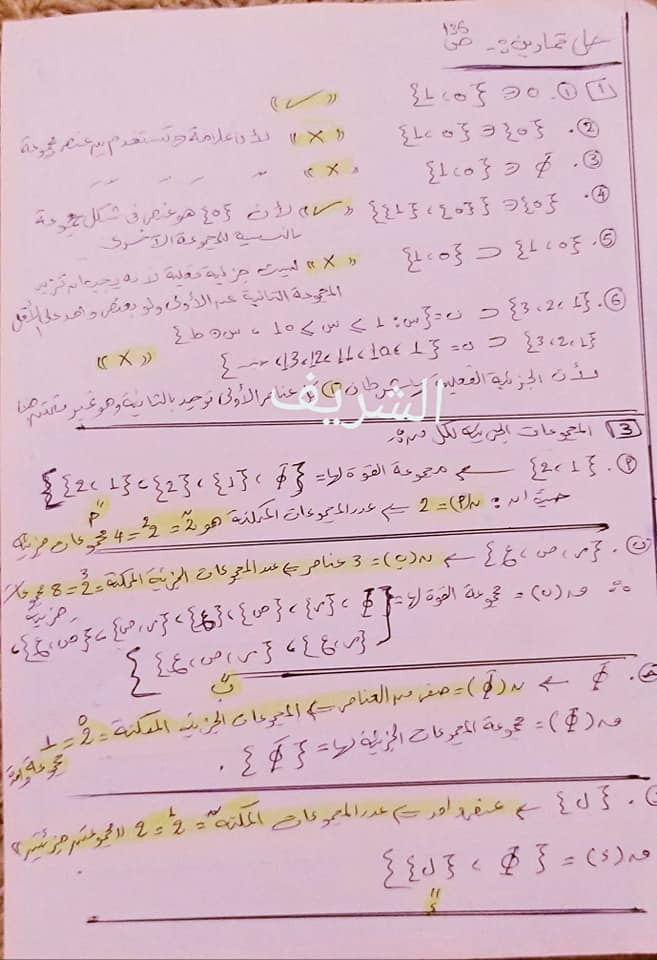 حل تمارين :- ص 136
[1] ① . 0 ∋ {1، 0} «✓»
② . {0} ∋ {1، 0} «×» لأن علامة ∋ تستخدم بين عنصر ومجموعة
③ . Φ ∋ {1، 0} «×» ” ” ”
④ . {0} ∋ {{0}، {1}} «✓» لأن {0} هو عنصر في شكل مجموعة
بالنسبة للمجموعة الأخرى
⑤ . {1، 0} ⊂ {1، 0} «×» ليست جزئية فعلية لأنه يجب ان تزيد
المجموعة الثانية عن الأولى ولو بعنصر واحد على الأقل
⑥ . {3، 2، 1} ⊂ ن = {س : 1 ≤ س ≤ 10 ، س ∋ ط}
{3، 2، 1} ⊂ ن = {1، 10، 11، 12، 13، ...}
«×»
لأن الجزئية الفعلية لها شرطان عناصر الأولى توجد بالثانية وهو غير متحقق هنا
الشريف
[3] المجموعات الجزئية لكل من :-
P . {2، 1} ← مجموعة القوة لها = {Φ، {1}، {2}، {2، 1}}
حيث ان : ن(P) = 2 ← عدد المجموعات الممكنة هو 2ⁿ = 2² = 4 مجموعات جزئية
ب . {س، ص، ع} ← ن(ب) = 3 عناصر ← عدد المجموعات الجزئية الممكنة = 2³ = 8 مجموعات جزئية
∴ ق(ب) = مجموعة القوة لها = {Φ، {س}، {ص}، {ع}، {س، ص}، {ص، ع}،
{س، ع}، {س، ص، ع}}
ج . Φ ← ن(Φ) = صفر من العناصر ← المجموعات الجزئية الممكنة = 2⁰ = 1
مجموعة واحدة
ق(Φ) = مجموعة المجموعات الجزئية لها = {Φ} .
. {ل} ← عنصر واحد ← عدد المجموعات الممكنة = 2¹ = 2 «مجموعتين جزئيتين»
ق(د) = {Φ، {ل}}